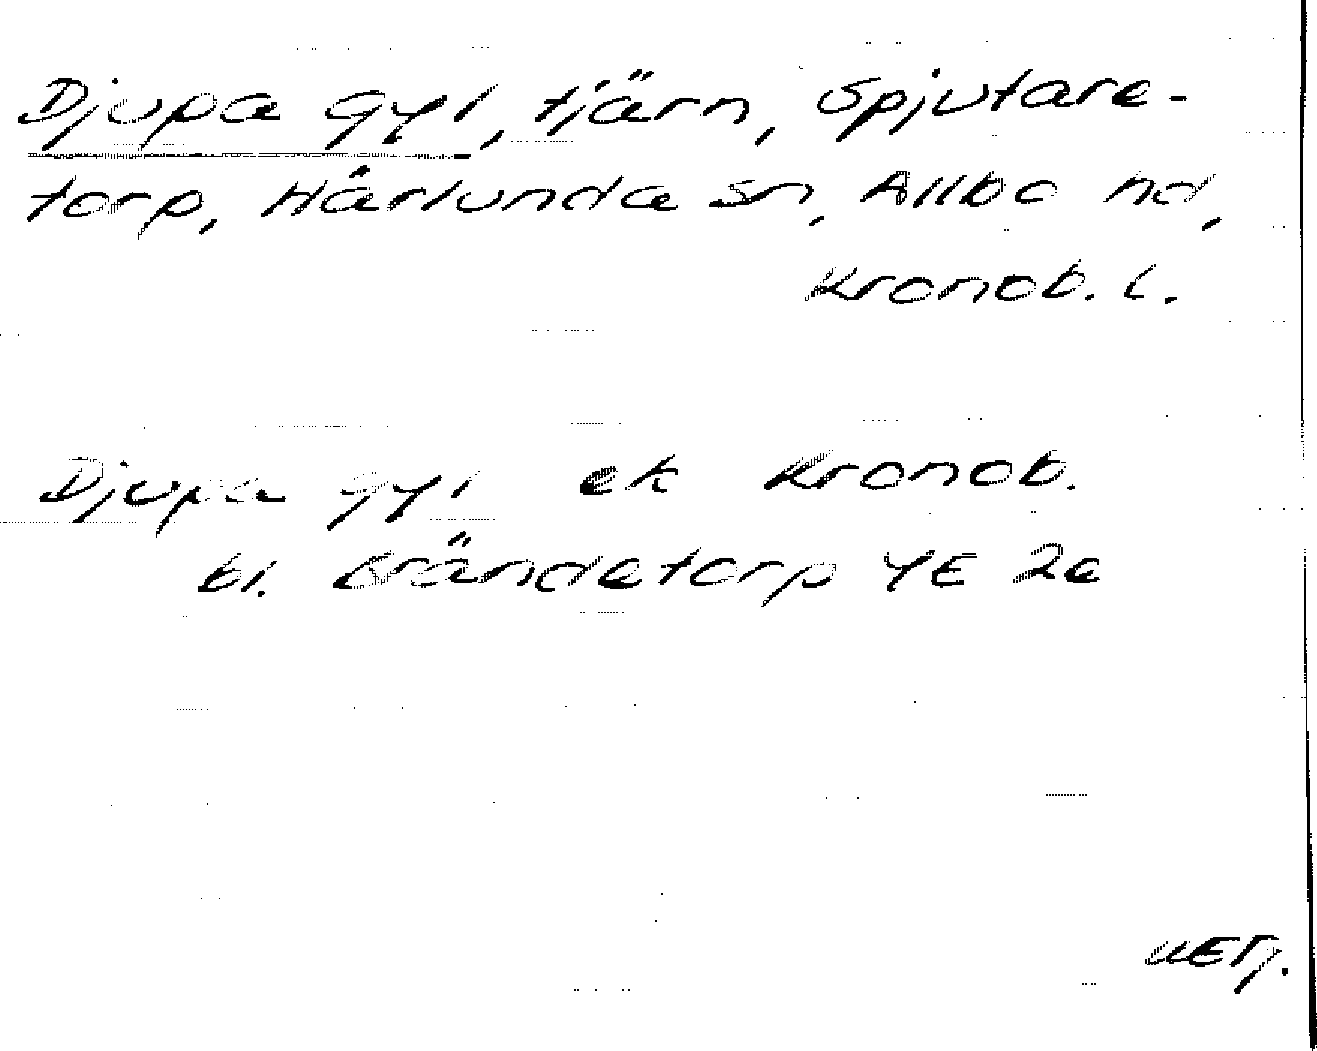 Djupa gyl, tjärn, Spjutare-
torp, Härlunda sn, Allbo hd,
Kronob. l.
Djupa gyl ek Kronob.
bl. Brändetorp 4E 2e